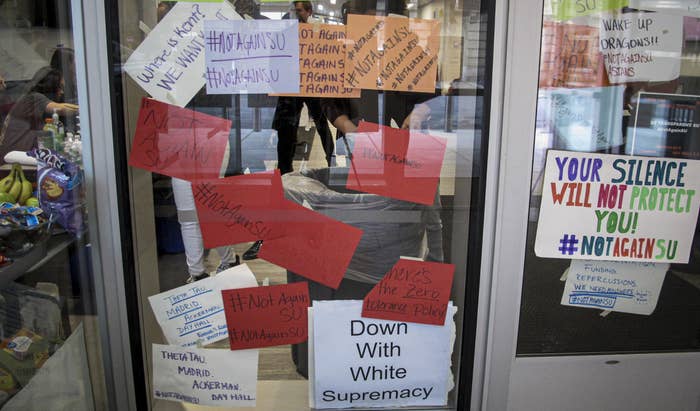 Where is Kent?
WE WANT
#NOTAGAINSU
#NOTAGAINSU
NOT AGAIN
NOTAGAINSU
NOTAGAINSU
NOTAGAINSU
#NOTAGAINSU
#NOTAGAINSU
#NOTAGAINSU
WAKE UP
DRAGONS!!
#NOTAGAINSU
ASIANS
NOT
AGAIN
SU
#NOTAGAINSU
#NOTAGAINSU
YOUR SILENCE
WILL NOT PROTECT
YOU!
#NOTAGAINSU
FUNDING
REPERCUSSIONS
WE NEED
#NOTAGAINSU
THETA TAU
MADRID
ACKERMAN
DAY HALL
#NOT AGAIN
SU
#NOTAGAINSU
There's
the Zero
tolerance Policy
THETA TAU.
MADRID.
ACKERMAN.
#NOTAGAINSU DAY HALL
Down
With
White
Supremacy